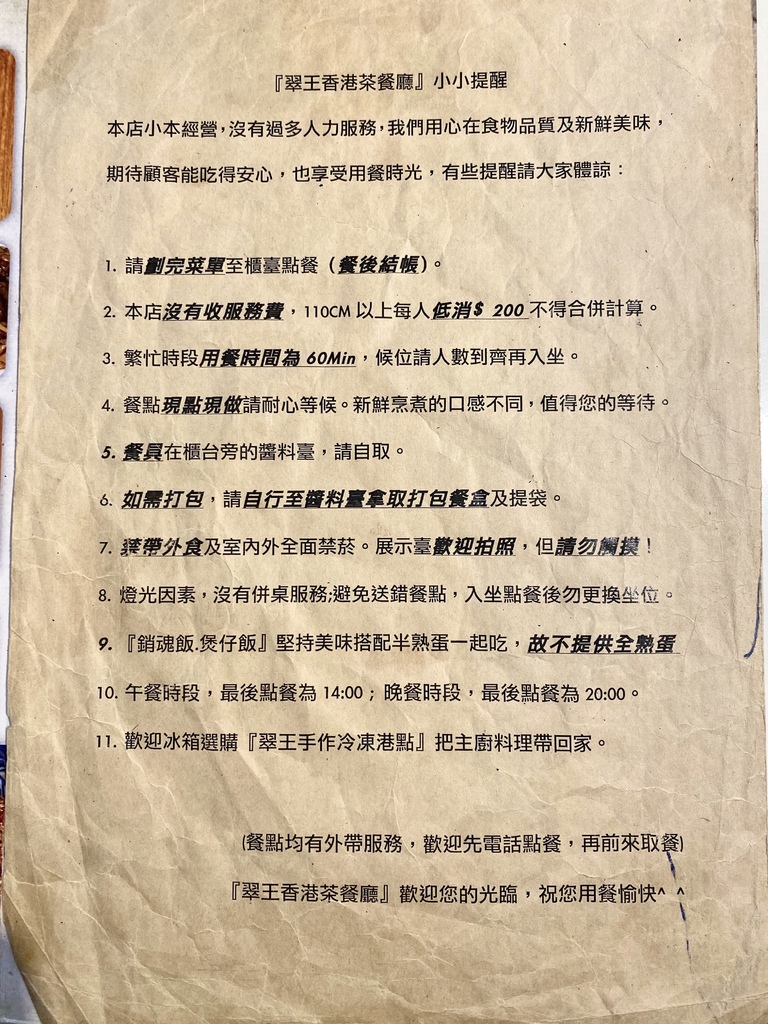 『翠王香港茶餐廳』小小提醒
本店小本經營，沒有過多人力服務，我們用心在食物品質及新鮮美味，
期待顧客能吃得安心，也享受用餐時光，有些提醒請大家體諒：
1. 請劃完菜單至櫃臺點餐（餐後結帳）。
2. 本店沒有收服務費，110CM 以上每人低消$ 200 不得合併計算。
3. 繁忙時段用餐時間為 60Min，候位請人數到齊再入坐。
4. 餐點現點現做請耐心等候。新鮮烹煮的口感不同，值得您的等待。
5. 餐具在櫃台旁的醬料臺，請自取。
6. 如需打包，請自行至醬料臺拿取打包餐盒及提袋。
7. 禁帶外食及室內外全面禁菸。展示臺歡迎拍照，但請勿觸摸！
8. 燈光因素，沒有併桌服務;避免送錯餐點，入坐點餐後勿更換坐位。
9. 『銷魂飯.煲仔飯』堅持美味搭配半熟蛋一起吃，故不提供全熟蛋
10. 午餐時段，最後點餐為 14:00；晚餐時段，最後點餐為 20:00。
11. 歡迎冰箱選購『翠王手作冷凍港點』把主廚料理帶回家。
(餐點均有外帶服務，歡迎先電話點餐，再前來取餐)
『翠王香港茶餐廳』歡迎您的光臨，祝您用餐愉快^ ^